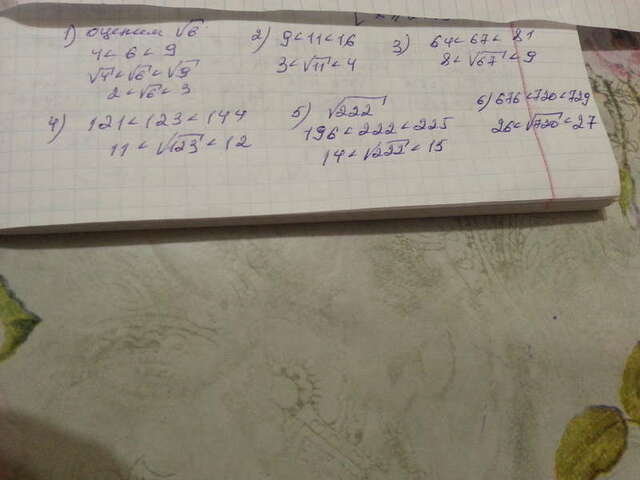 1) оценим √6
4 < 6 < 9
√4 < √6 < √9
2 < √6 < 3
2) 9 < 11 < 16
3 < √11 < 4
3) 64 < 67 < 81
8 < √67 < 9
4) 121 < 123 < 144
11 < √123 < 12
5) √222
196 < 222 < 225
14 < √222 < 15
6) 676 < 720 < 729
26 < √720 < 27